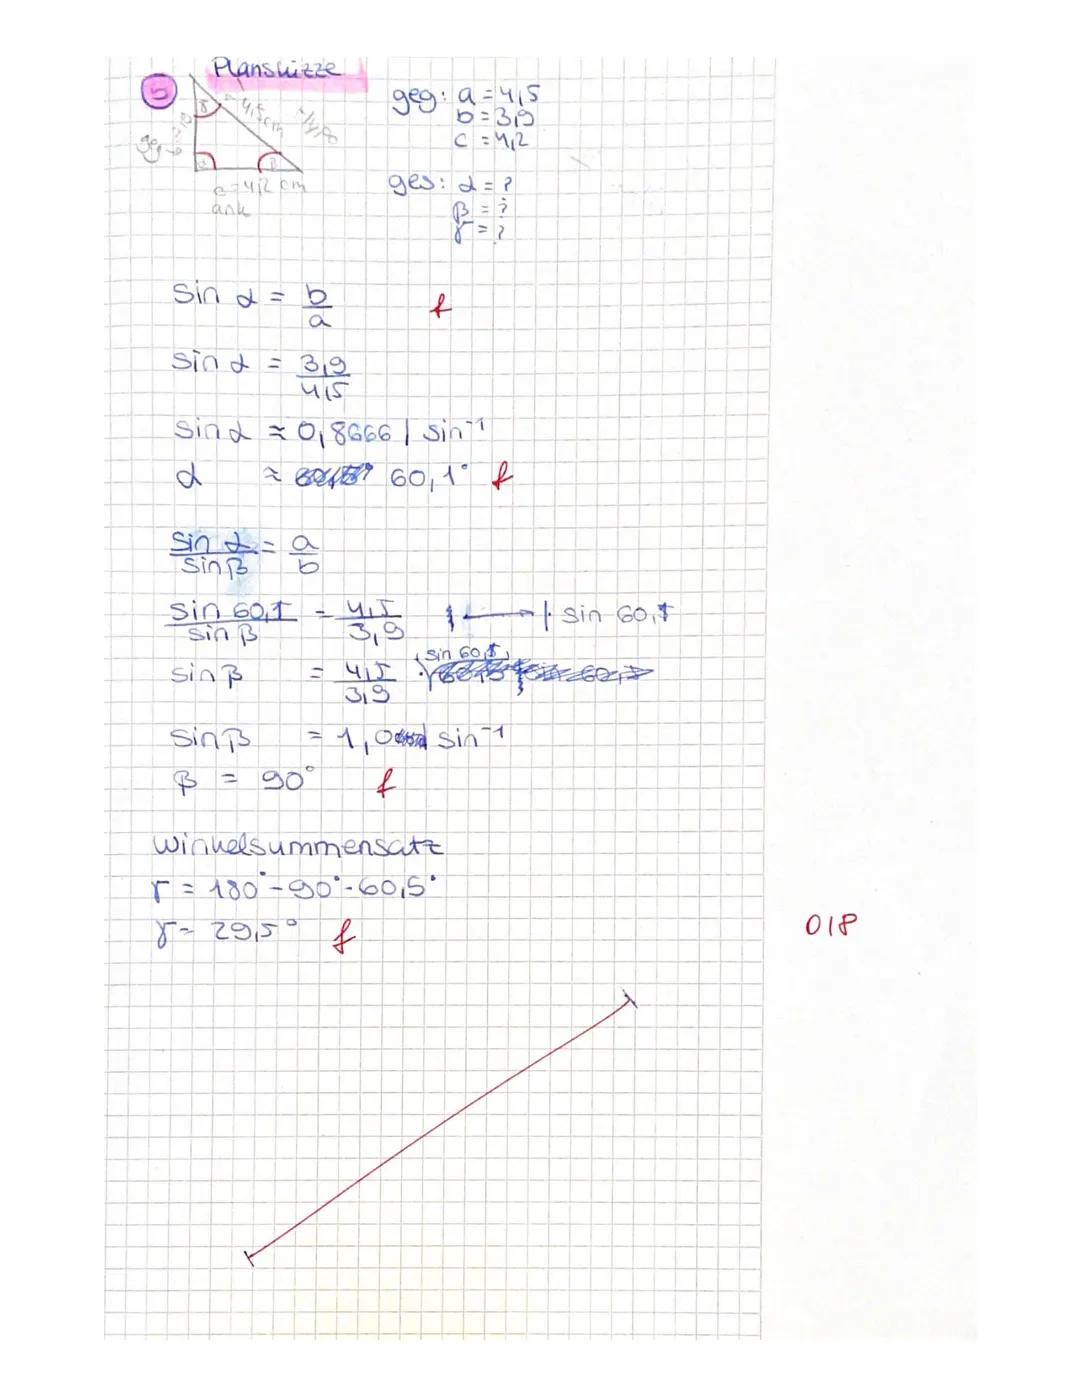 Planskizze
5
geg: a = 4,5
b = 3,9
c = 4,2
4,5cm
geg
c = 4,2 cm
ank
ges: α = ?
β = ?
γ = ?
sin α = b/a f
sin α = 3,9/4,5
sin α ≈ 0,8666 | sin⁻¹
α ≈ 60,1° f
sin α/sin β = a/b
sin 60,1/sin β = 4,5/3,9 | · sin 60,1
sin β = 4,5/3,9 · sin 60,1
sin β = 1,0 | sin⁻¹
β = 90° f
Winkelsummensatz
γ = 180° - 90° - 60,5°
γ = 29,5° f
0/8